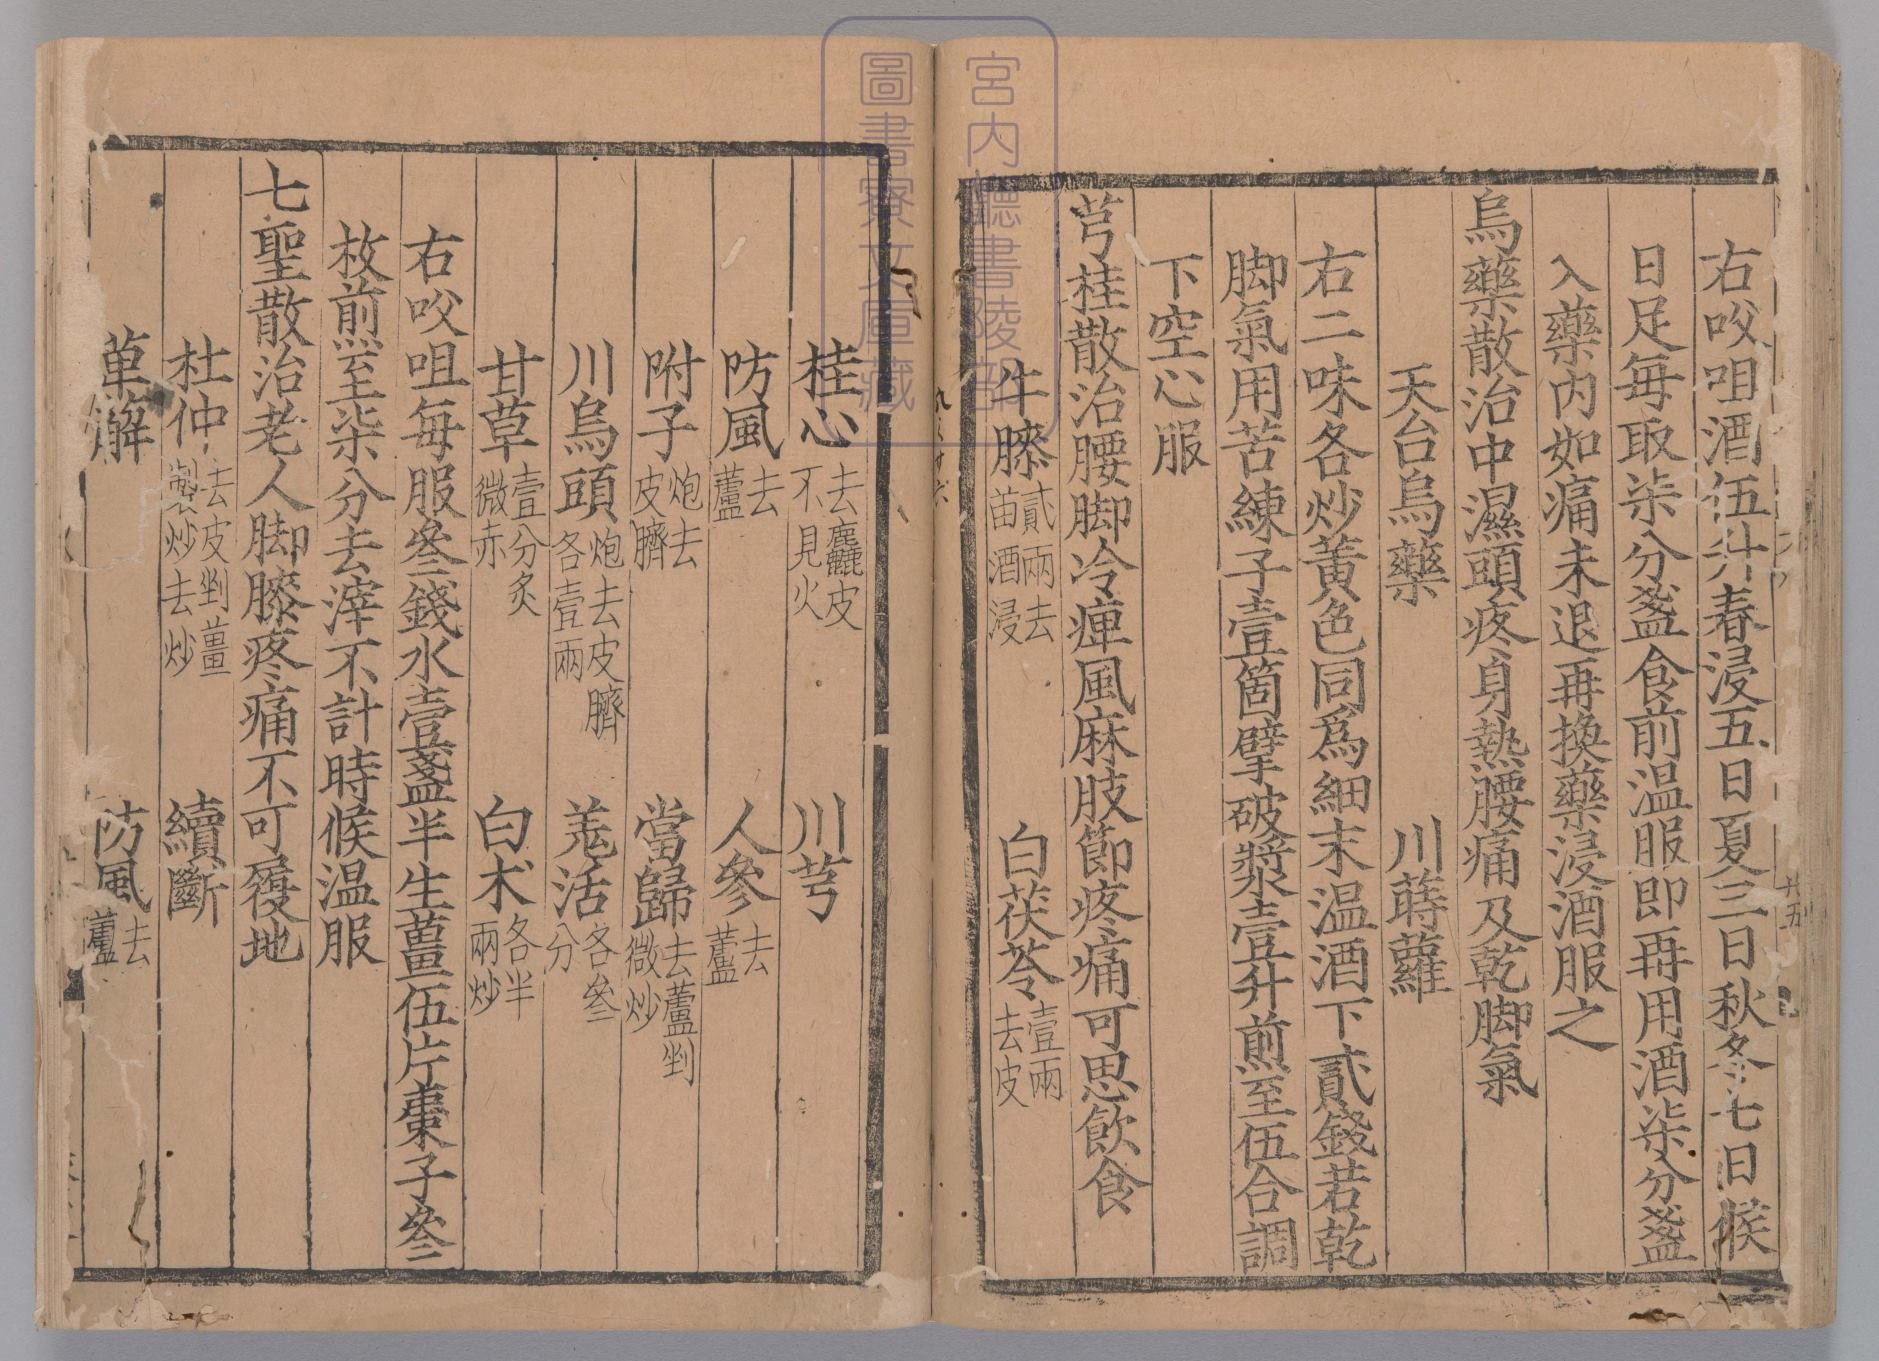 右㕮咀酒伍升春浸五日夏三日秋冬七日候
日足毎取柒分盞食前温服即再用酒柒分盞
入藥内如痛未退再換藥浸酒服之
烏藥散治中濕頭疼身熱腰痛及乾脚氣
天台烏藥 川蒔蘿
右二味各炒黄色同爲細末温酒下貳錢若乾
脚氣用苦練子壹箇擘破漿壹升煎至伍合調
下空心服
芎桂散治腰脚冷痺風麻肢節疼痛可思飲食
牛膝貳兩去苗酒浸 白茯苓壹兩去皮
桂心去麤皮不見火 川芎
防風去蘆 人參去蘆
附子炮去皮臍 當歸去蘆剉微炒
川烏頭炮去皮臍各壹兩 羗活各叄分
甘草壹分炙微赤 白朮各半兩炒
右㕮咀毎服叄錢水壹盞半生薑伍片棗子叄
枚煎至柒分去滓不計時候温服
七聖散治老人脚膝疼痛不可履地
杜仲去皮剉薑製炒去炒 續斷
萆薢 防風去蘆
宮内廳書陵部
圖書寮文庫藏
廿五